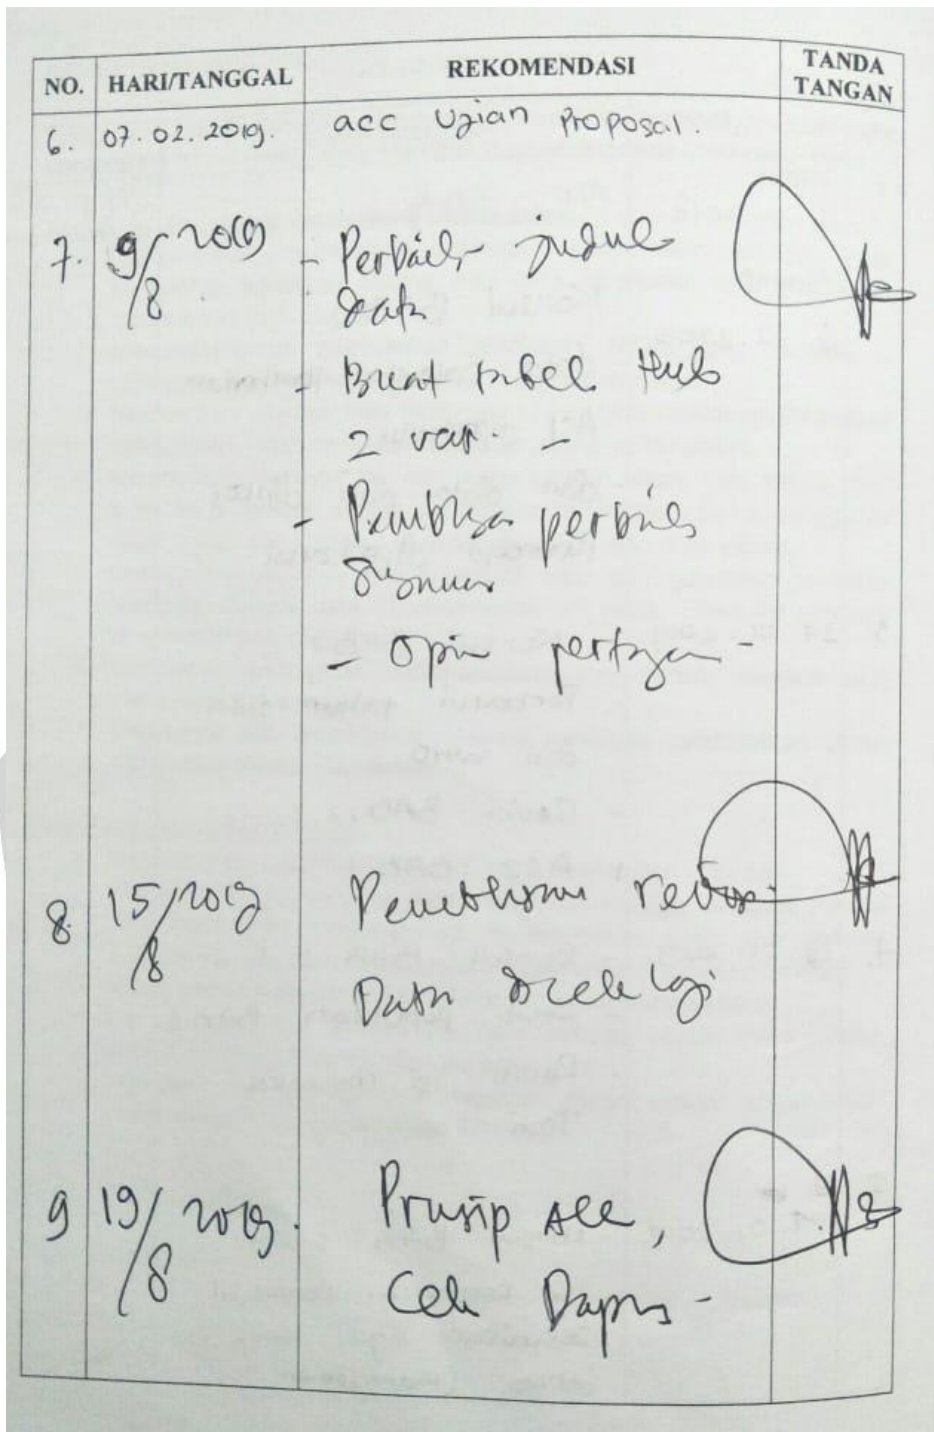 NO. HARI/TANGGAL REKOMENDASI TANDA TANGAN
6. 07.02.2019. acc Ujian Proposal.
7. 9/8 2019 - Perbaiki judul
data
- Buat tabel Hub
2 var. -
- perbaiki
- Opini -
8. 15/8 2019 revisi
Data dicek lagi
9 19/8 2019. Prinsip acc,
Cek Dapus -